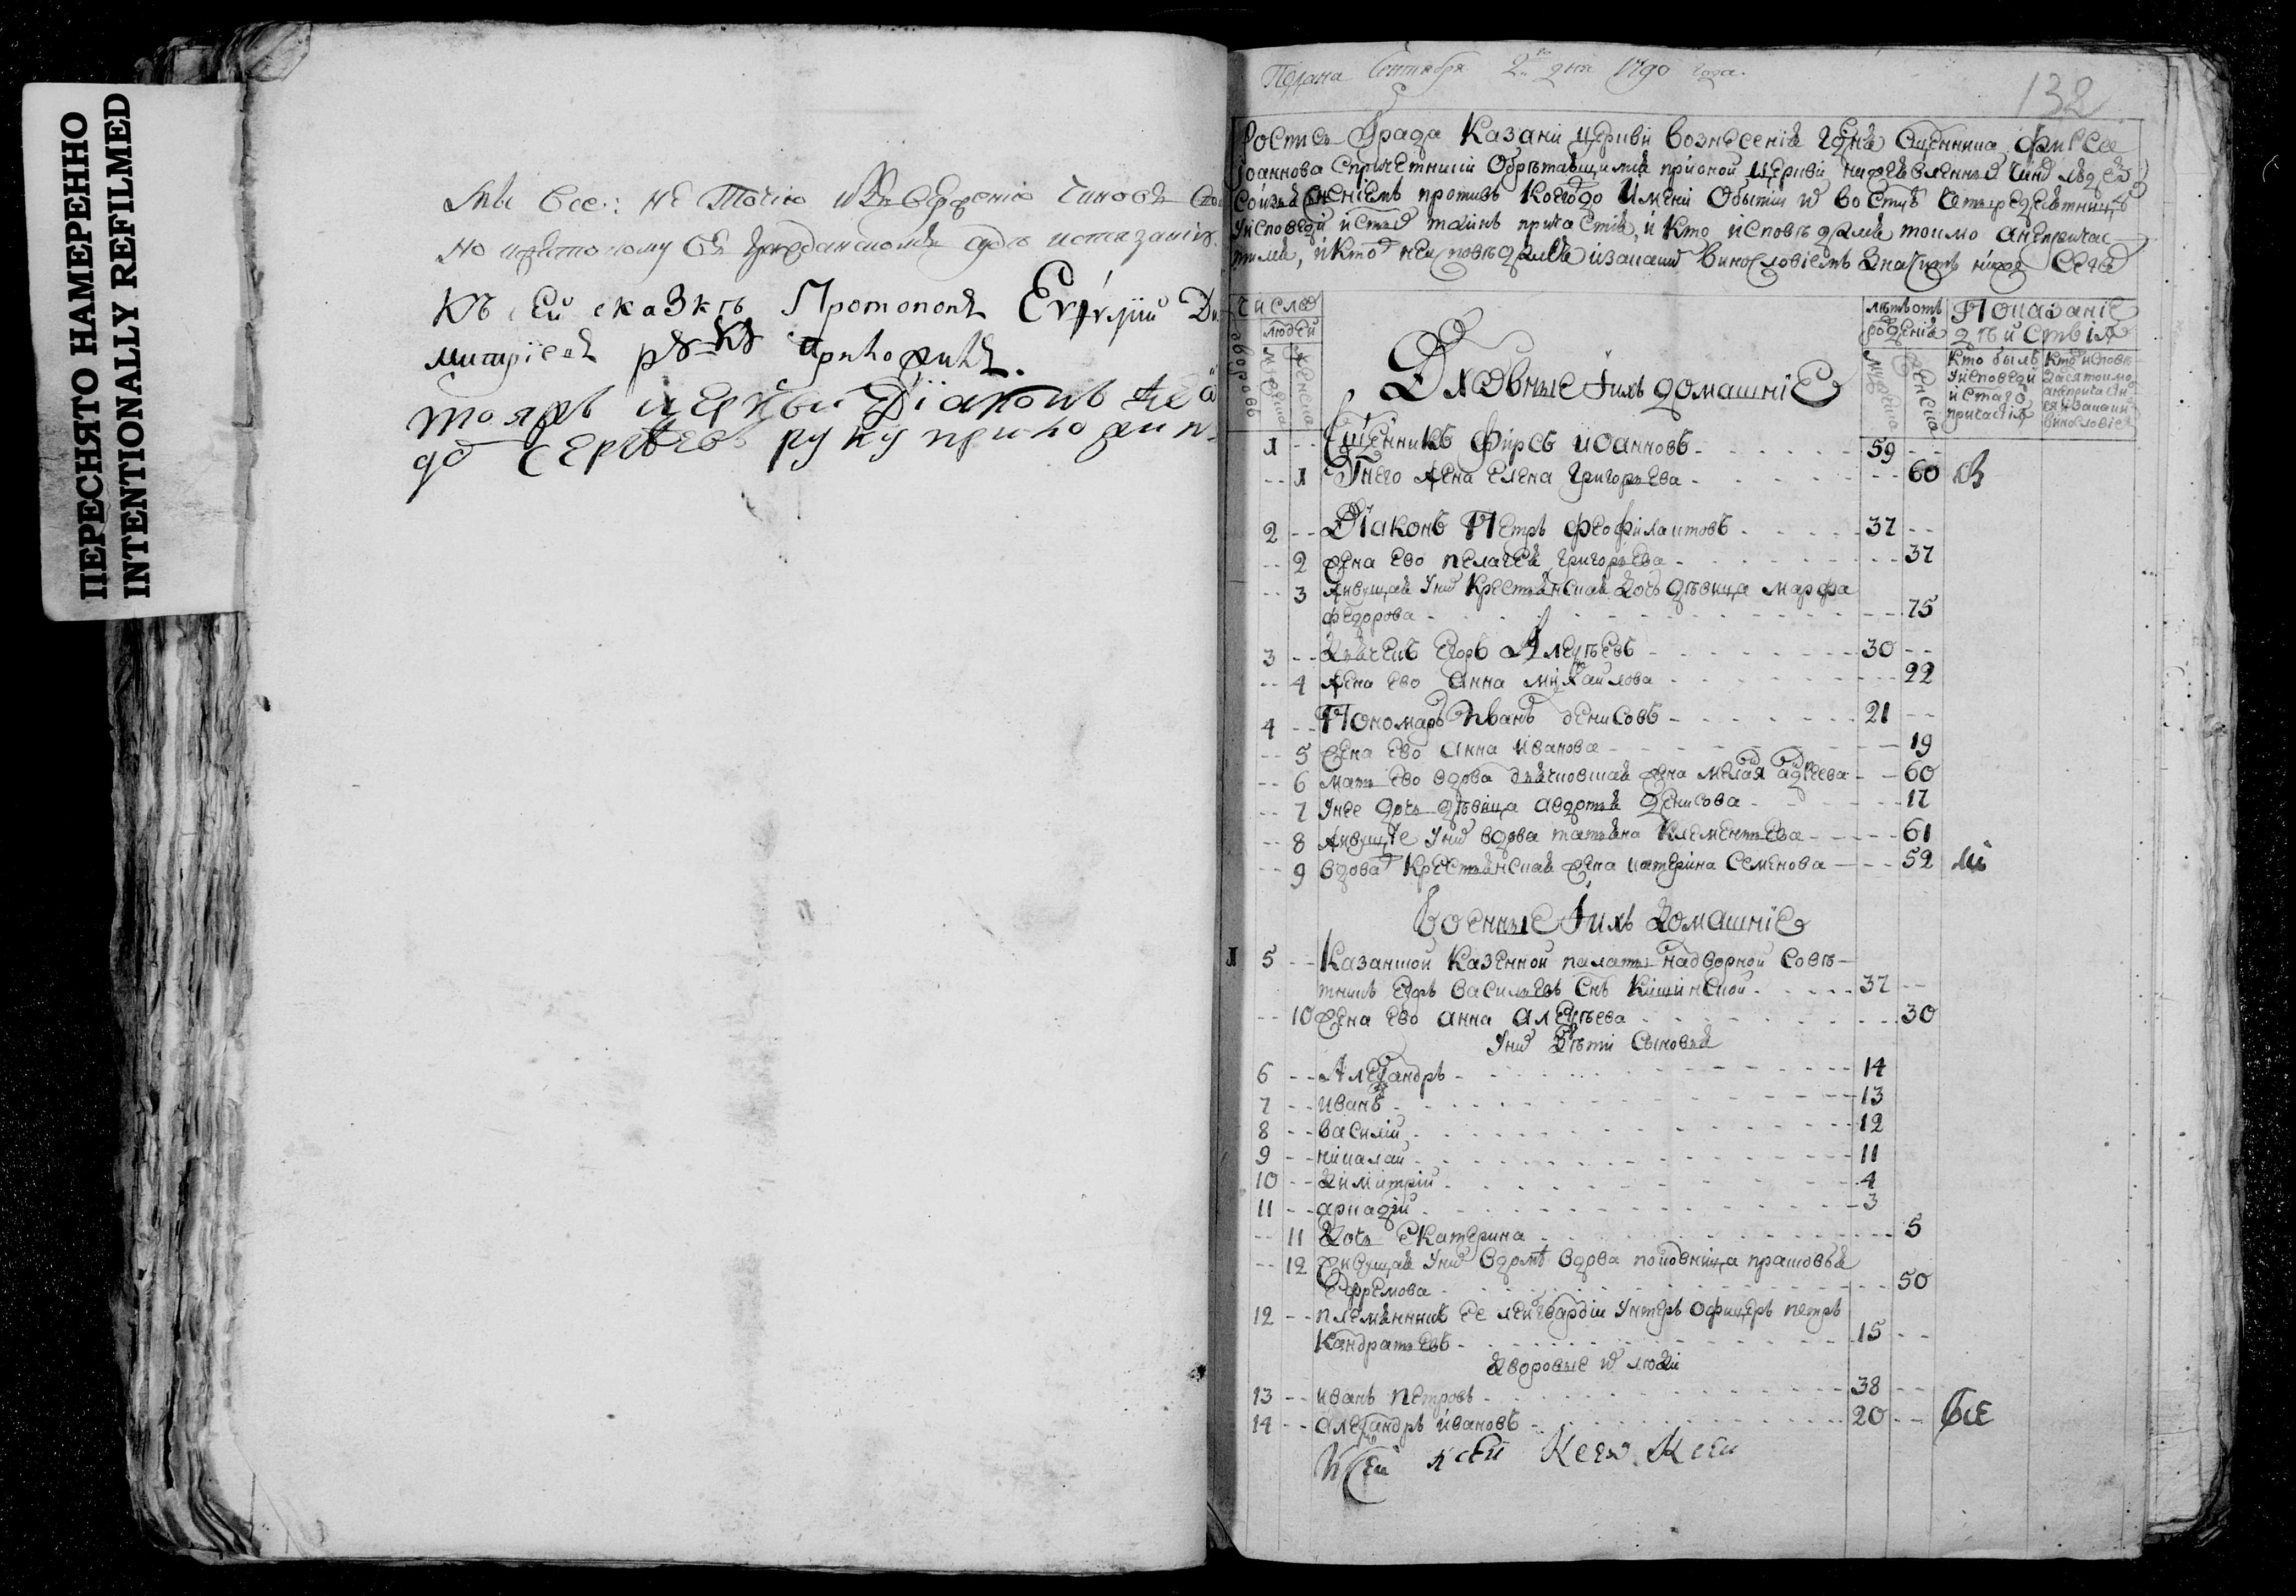 ПЕРЕСНЯТО НАМЕРЕННО
INTENTIONALLY REFILMED
все: не точию
но
Къ сей сказкѣ Протопопъ Димитрiевъ рꙋкꙋ приложилъ.
тояжъ церкви Дїаконъ
Сергѣевъ руку приложил
Подана Сентября 2 дня 1790 года.
132
Роспись града Казани церкви вознесенiя Гдня Сщенника Фирса
Iоаннова с причетники обрѣтающимися при оной церкви
противъ коегождо имени
исповеди и стых таинъ причастiя, и кто исповѣдался токмо а не причас
тился, и кто не исповѣдался и заканим винословiемъ значитъ ниже сего
Число
людей
дворовъ
мужеска
женска
Дховные и ихъ домашнiе
лѣтъ отъ
рожденiя
мужеска
женска
Показанiе
дѣйствiя
Кто былъ
у исповеди
и стаго
причастiя
Кто исповѣ
дался токмо
а не причасти
винословiе
1 -- Сщенникъ Фирсъ Иоанновъ 59 --
-- 1 У него жена Елена Григорьева -- 60
2 -- Дiаконъ Петръ Феофилактовъ 37 --
-- 2 жена ево Пелагея Григорьева -- 37
-- 3 живущая у них крестьянская дочь дѣвица Марфа
Федорова -- 75
3 -- Дьячекъ Егоръ Алеѯѣевъ 30 --
-- 4 жена ево Анна Михайлова -- 22
4 -- Пономарь Иванъ Денисовъ 21 --
-- 5 жена ево Анна Иванова -- 19
-- 6 мать ево вдова дьячковская жена -- 60
-- 7 У нее дочь дѣвица Авдотья Денисова -- 17
-- 8 живущiе у них вдова Татьяна Клементьева -- 61
-- 9 вдова крестьянская жена Катерина Семенова -- 52
Военные и ихъ домашнiе
1 5 -- Казанской казенной палаты надворной совѣ-
тникъ Егоръ Васильевъ снъ Кишинской 37 --
-- 10 жена ево Анна Алеѯѣева -- 30
У них дѣти сыновья
6 -- Алеѯандръ 14
7 -- Иванъ 13
8 -- Василiй 12
9 -- Николай 11
10 -- Димитрiй 4
11 -- Аркадiй 3
-- 11 Дочь Екатерина 5
-- 12 живущая у них в домѣ вдова Прасковья
Ефремова -- 50
12 -- племянникъ ее лейбгвардiи унтеръ офицеръ Петръ
Кандратьевъ 15 --
Дворовые их люди
13 -- Иванъ Петровъ 38 --
14 -- Алеѯандръ Ивановъ 20 -- Все